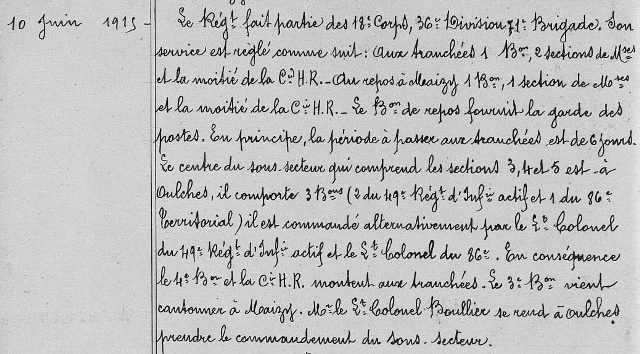 10 Juin 1915 - Le Régt fait partie des 18e Corps, 36e Division, 71e Brigade. Son
service est réglé comme suit : Aux tranchées 1 Bon, 2 sections de Mses
et la moitié de la Cie H.R. - Au repos à Maizy 1 Bon, 1 section de Mses
et la moitié de la Cie H.R. - Le Bon de repos fournit la garde des
postes. En principe, la période à passer aux tranchées est de 6 jours.
Le centre du sous-secteur qui comprend les sections 3, 4 et 5 est à
Oulches, il comporte 3 Bons (2 du 49e Régt d'Infie actif et 1 du 86e
Territorial) il est commandé alternativement par le Lt Colonel
du 49e Régt d'Infie actif et le Lt Colonel du 86e. En conséquence
le 4e Bon et la Cie H.R. montent aux tranchées. Le 3e Bon vient
cantonner à Maizy. Mr le Lt Colonel Boullier se rend à Oulches
prendre le commandement du sous-secteur.